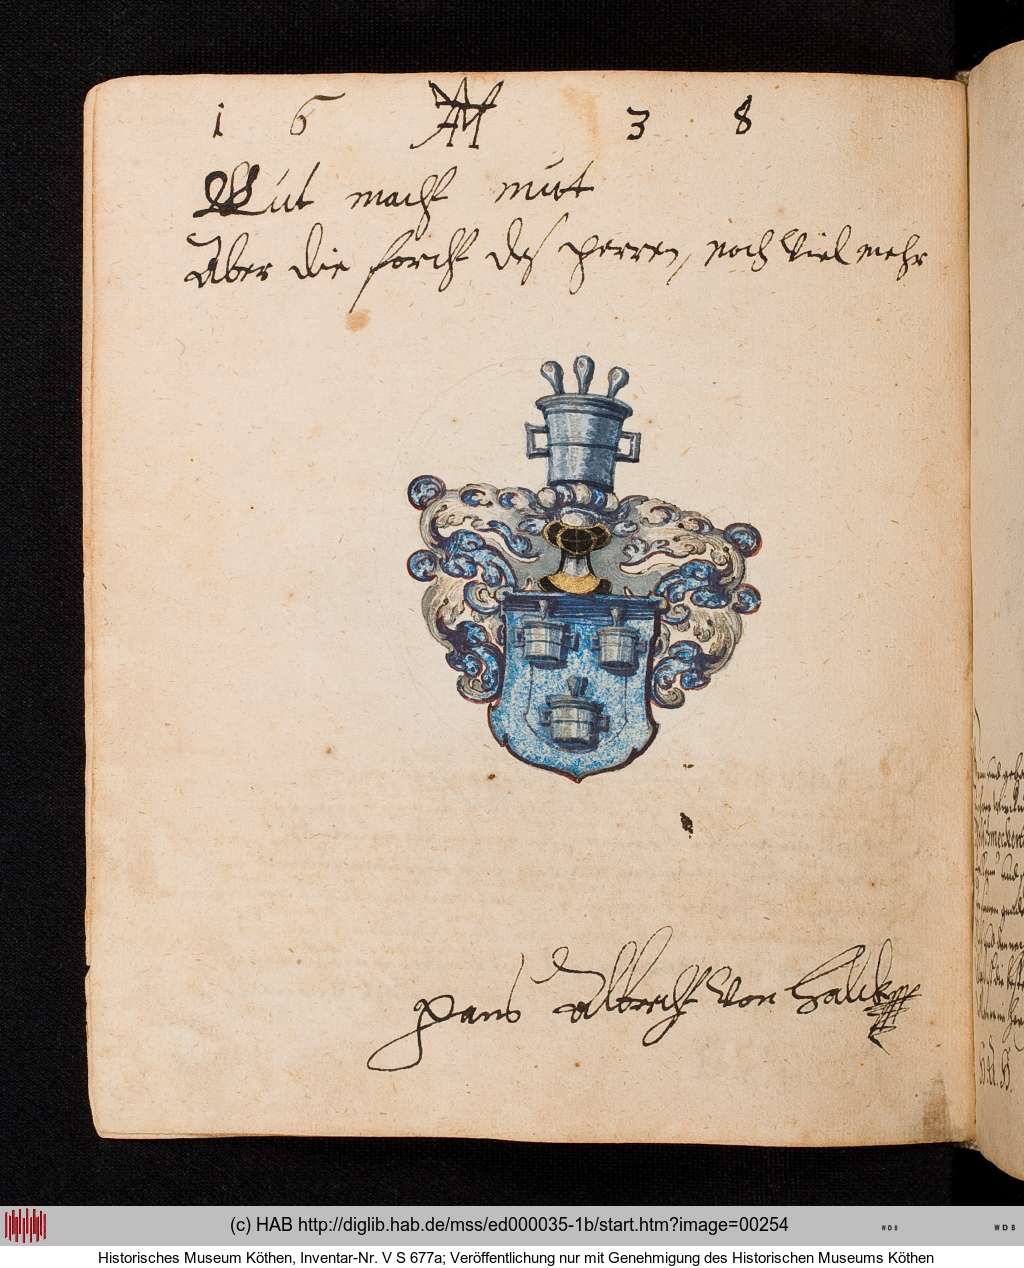 16 AH 38
Gut macht mut
Aber die forcht deß Herren, noch viel mehr
Hans Albrecht von Halck
(c) HAB http://diglib.hab.de/mss/ed000035-1b/start.htm?image=00254
WDB
WDB
Historisches Museum Köthen, Inventar-Nr. V S 677a; Veröffentlichung nur mit Genehmigung des Historischen Museums Köthen